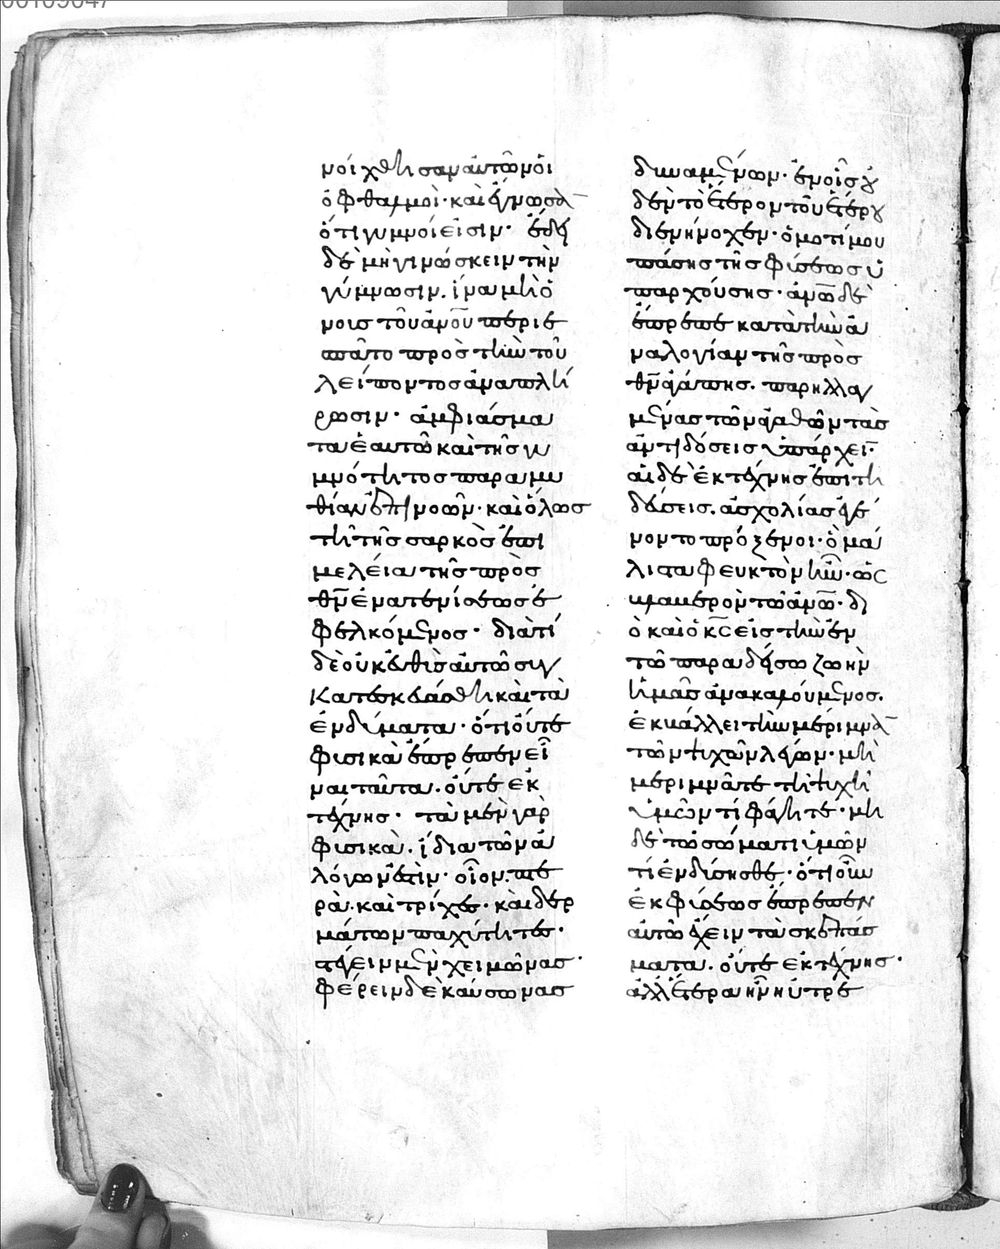 νοίχθησαν αὐτῶν οἱ
ὀφθαλμοὶ· καὶ ἔγνωσᾱ
ὅτι γυμνοί εἰσιν· ἔδει
δὲ μὴ γινώσκειν τὴν
γύμνωσιν. ἵνα μὴ ὁ
νοῦς τοῦ ἀνου περιε
σπᾶτο πρὸς τὴν τοῦ
λείποντος ἀναπλή
ρωσιν· ἀμφιάσμα
τα ἑαυτῶ καὶ τῆς γυ
μνότητος παραμυ
θίαν ἐπινοῶν· καὶ ὅλως
τῆ τῆς σαρκὸς ἐπι
μελεία τῆς πρὸς
θν ἐνατενίσεως ἐ
φελκόμενος· διατί
δὲ οὐκ εὐθὺς αὐτῶ συγ
κατεσκευάσθη καὶ τὰ
ἐνδύματα· ὅτι οὔτε
φυσικὰ ἔπρεπεν εἶ
ναι ταῦτα. οὔτε ἐκ
τέχνης· τὰ μὲν γὰρ
φυσικὰ. ἴδια τῶν ἀ
λόγων ἐστὶν· οἷον. πτε
ρὰ. καὶ τρίχες· καὶ δερ
μάτων παχύτητες·
στέγειν μὲν χειμῶνας·
φέρειν δὲ καύσωνας
δυναμένων· ἐν οἷς οὐ
δὲν τὸ ἕτερον τοῦ ἑτέρου
διενήνοχεν· ὁμοτίμου
πάσης τῆς φύσεως ὑ
παρχούσης· ἀνω δὲ
ἔπρεπε κατὰ τὴν ἀ
ναλογίαν τῆς πρὸς
θν ἀγάπης. παρηλλαγ
μένας τῶν ἀγαθῶν τὰς
ἀντιδόσεις ὑπάρχειν·
αἱ δὲ ἐκ τέχνης ἐπιτη
δεύσεις. ἀσχολίας ἐγέ
νοντο πρόξενοι· ὃ μά
λιστα φευκτὸν ἦν· ὡς
βλαβερὸν τῶ ἀνω· δι
ὸ καὶ ὁ κς εἰς τὴν ἐν
τῶ παραδείσω ζωὴν
ἡμᾶς ἀνακαλούμενος.
ἐκβάλλει τὴν μέριμνᾱ
τῶν ψυχῶν λέγων· μὴ
μεριμνᾶτε τῆ ψυχῆ
ὑμῶν τί φάγητε· μη
δὲ τῶ σώματι ὑμῶν
τί ἐνδύσησθε· ὅτι οὖν
ἐκ φύσεως ἔπρεπεν
αὐτῶ ἔχειν τὰ σκεπάσ
ματα. οὔτε ἐκ τέχνης·
ἀλλ' ἕτερα ἦν ηὐτρε